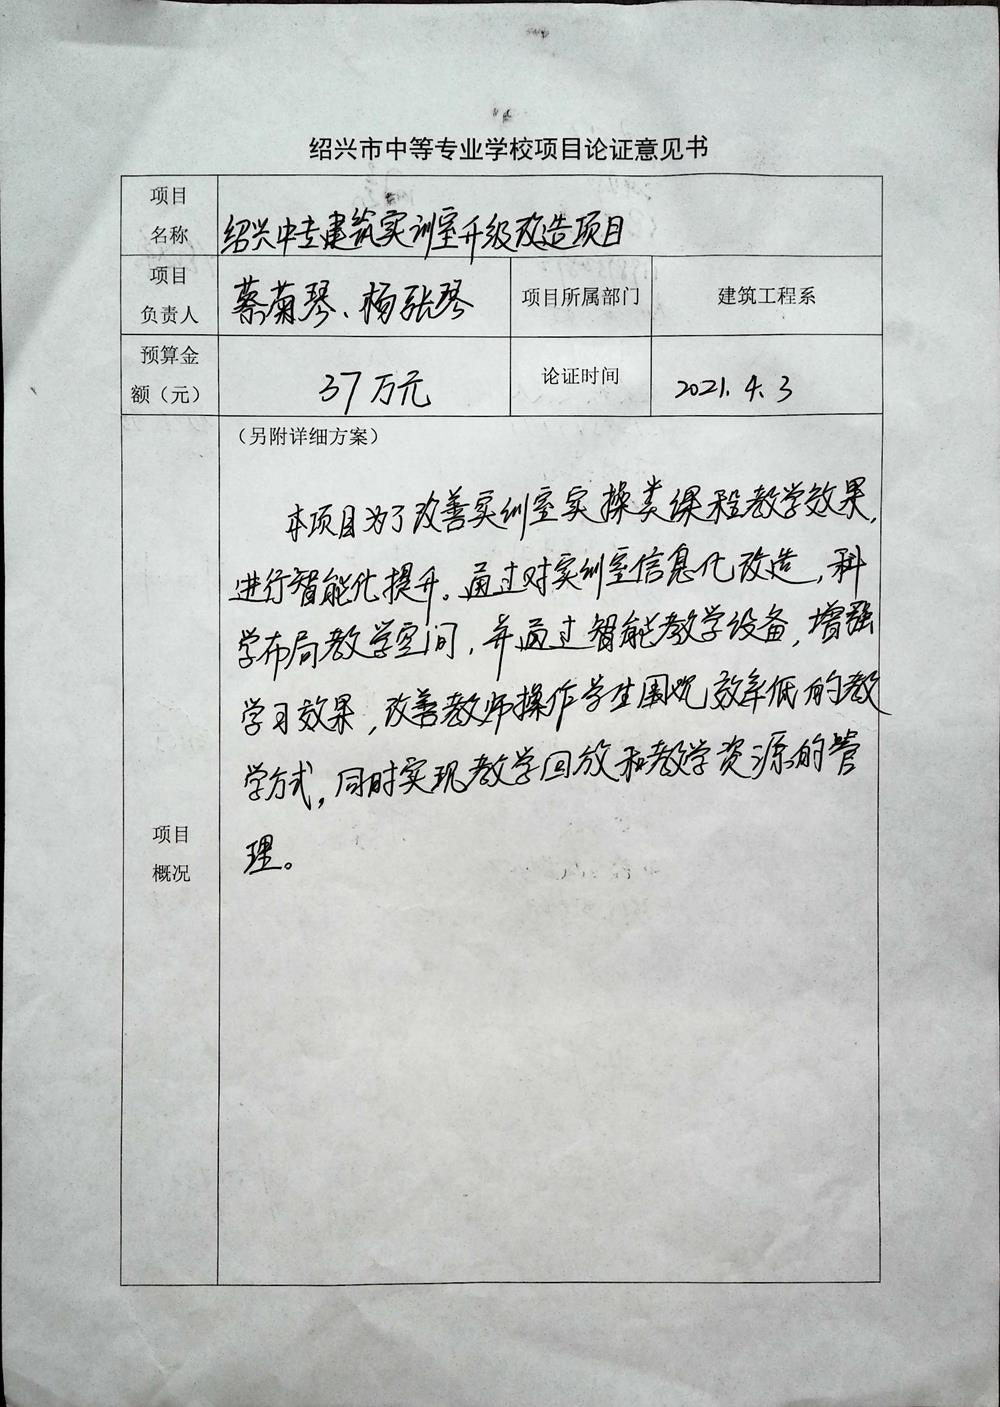 绍兴市中等专业学校项目论证意见书
项目
名称
绍兴中专建筑实训室升级改造项目
项目
负责人
蔡菊琴、杨张琴
项目所属部门
建筑工程系
预算金
额（元）
37万元
论证时间
2021.4.3
项目
概况
（另附详细方案）
本项目为了改善实训室实操类课程教学效果，
进行智能化提升。通过对实训室信息化改造，科
学布局教学空间，并通过智能教学设备，增强
学习效果，改善教师操作学生围观效率低的教
学方式，同时实现教学回放和教学资源的管
理。